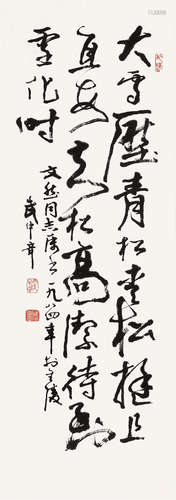 大雪压青松青松挺且
直要知松高洁待到
雪化时
文然同志属书一九八四年於金陵
武中奇